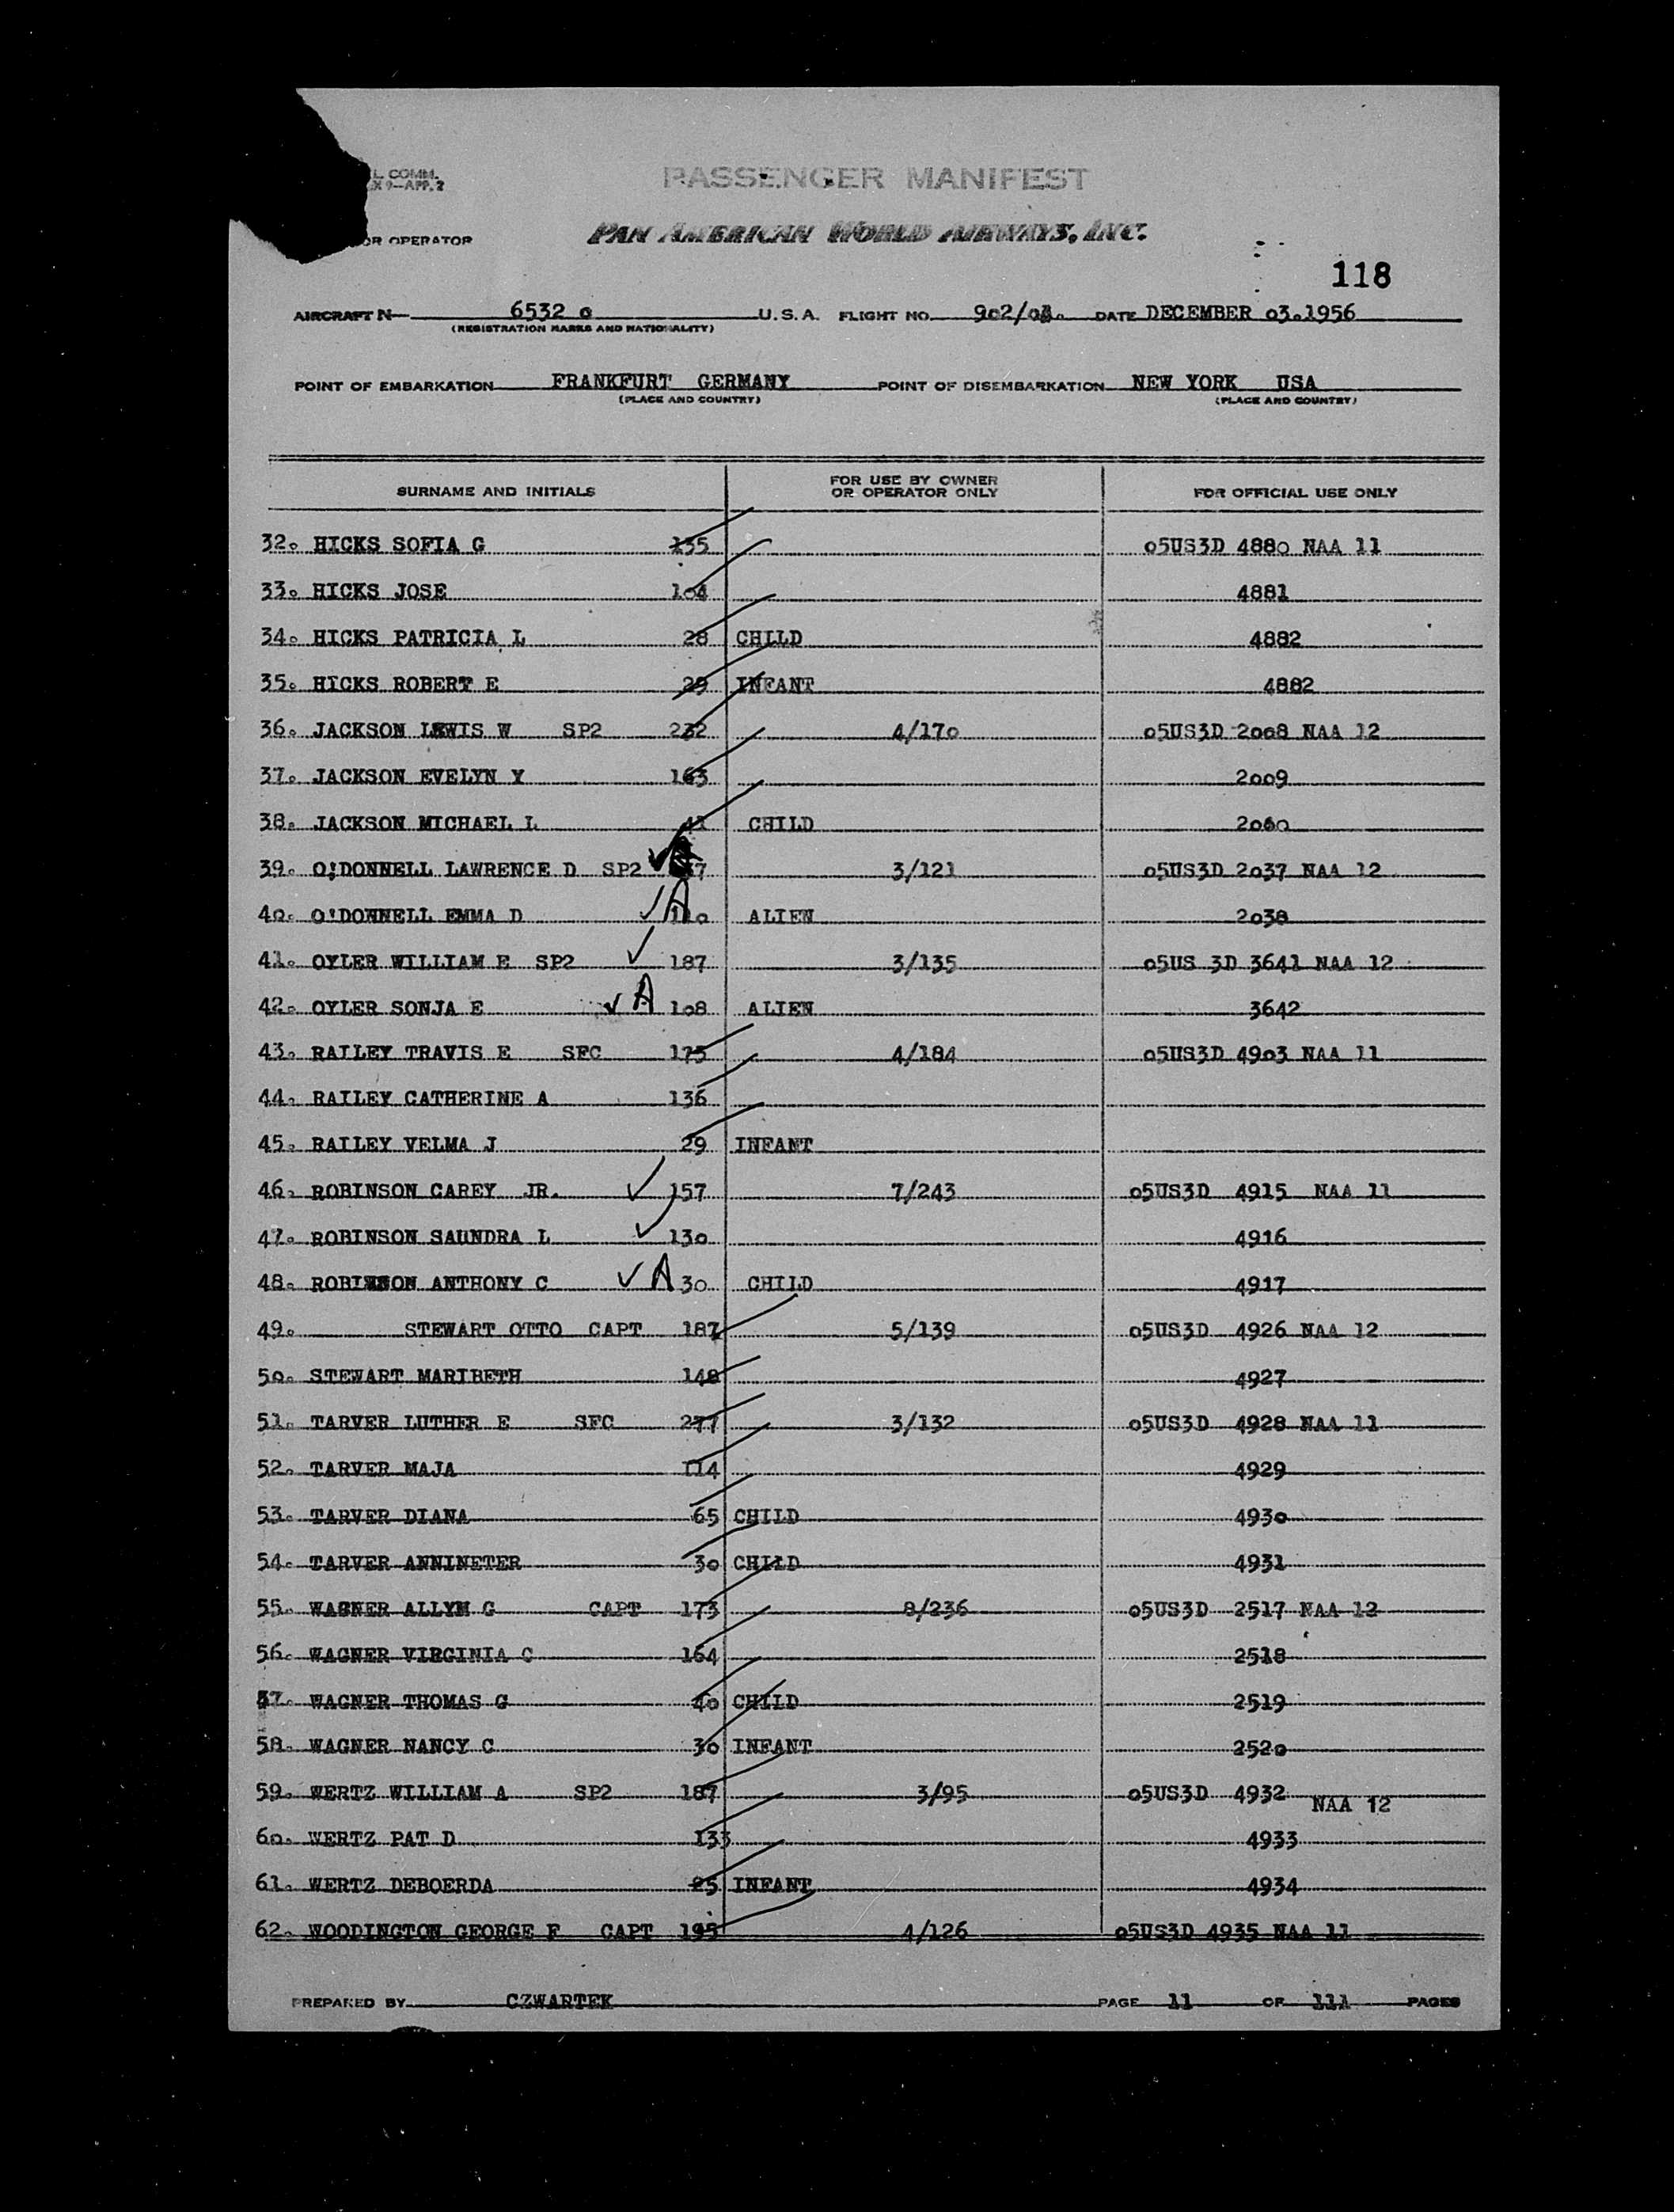 L. COMM.
X 9—APP. 2
PASSENGER MANIFEST
OR OPERATOR
PAN AMERICAN WORLD AIRWAYS, INC.
118
AIRCRAFT N 6532 o U.S.A. FLIGHT NO. 9o2/o3. DATE DECEMBER o3.1956
(REGISTRATION MARKS AND NATIONALITY)
POINT OF EMBARKATION FRANKFURT GERMANY POINT OF DISEMBARKATION NEW YORK USA
(PLACE AND COUNTRY) (PLACE AND COUNTRY)
SURNAME AND INITIALS FOR USE BY OWNER OR OPERATOR ONLY FOR OFFICIAL USE ONLY
32. HICKS SOFIA G 135 o5US3D 488o NAA 11
33. HICKS JOSE 1o4 4881
34. HICKS PATRICIA L 28 CHILD 4882
35. HICKS ROBERT E 29 INFANT 4882
36. JACKSON LEWIS W SP2 232 4/17o o5US3D 2oo8 NAA 12
37. JACKSON EVELYN Y 163 2oo9
38. JACKSON MICHAEL L 41 CHILD
39. O'DONNELL LAWRENCE D SP2 ✓ 3/121 o5US3D 2o37 NAA 12
4o. O'DONNELL EMMA D ✓ A ALIEN 2o38
41. OYLER WILLIAM E SP2 ✓ 187 3/135 o5US 3D 3641 NAA 12
42. OYLER SONJA E ✓ A 1o8 ALIEN 3642
43. RAILEY TRAVIS E SFC 175 4/184 o5US3D 49o3 NAA 11
44. RAILEY CATHERINE A 136
45. RAILEY VELMA J 29 INFANT
46. ROBINSON CAREY JR. ✓ 157 7/243 o5US3D 4915 NAA 11
47. ROBINSON SAUNDRA L ✓ 13o 4916
48. ROBINSON ANTHONY C ✓ A 3o CHILD 4917
49. STEWART OTTO CAPT 187 5/139 o5US3D 4926 NAA 12
5o. STEWART MARIBETH 148 4927
51. TARVER LUTHER E SFC 277 3/132 o5US3D 4928 NAA 11
52. TARVER MAJA 114 4929
53. TARVER DIANA 65 CHILD 493o
54. TARVER ANNINETER 3o CHILD 4931
55. WAGNER ALLYM G CAPT 173 8/236 o5US3D 2517 NAA 12
56. WAGNER VIRGINIA C 164 2518
57. WAGNER THOMAS G 4o CHILD 2519
58. WAGNER NANCY C 3o INFANT 252o
59. WERTZ WILLIAM A SP2 187 3/95 o5US3D 4932 NAA 12
6o. WERTZ PAT D 133 4933
61. WERTZ DEBOERDA 25 INFANT 4934
62. WOODINGTON GEORGE F CAPT 195 4/126 o5US3D 4935 NAA 11
PREPARED BY CZWARTEK PAGE 11 OF 111 PAGES